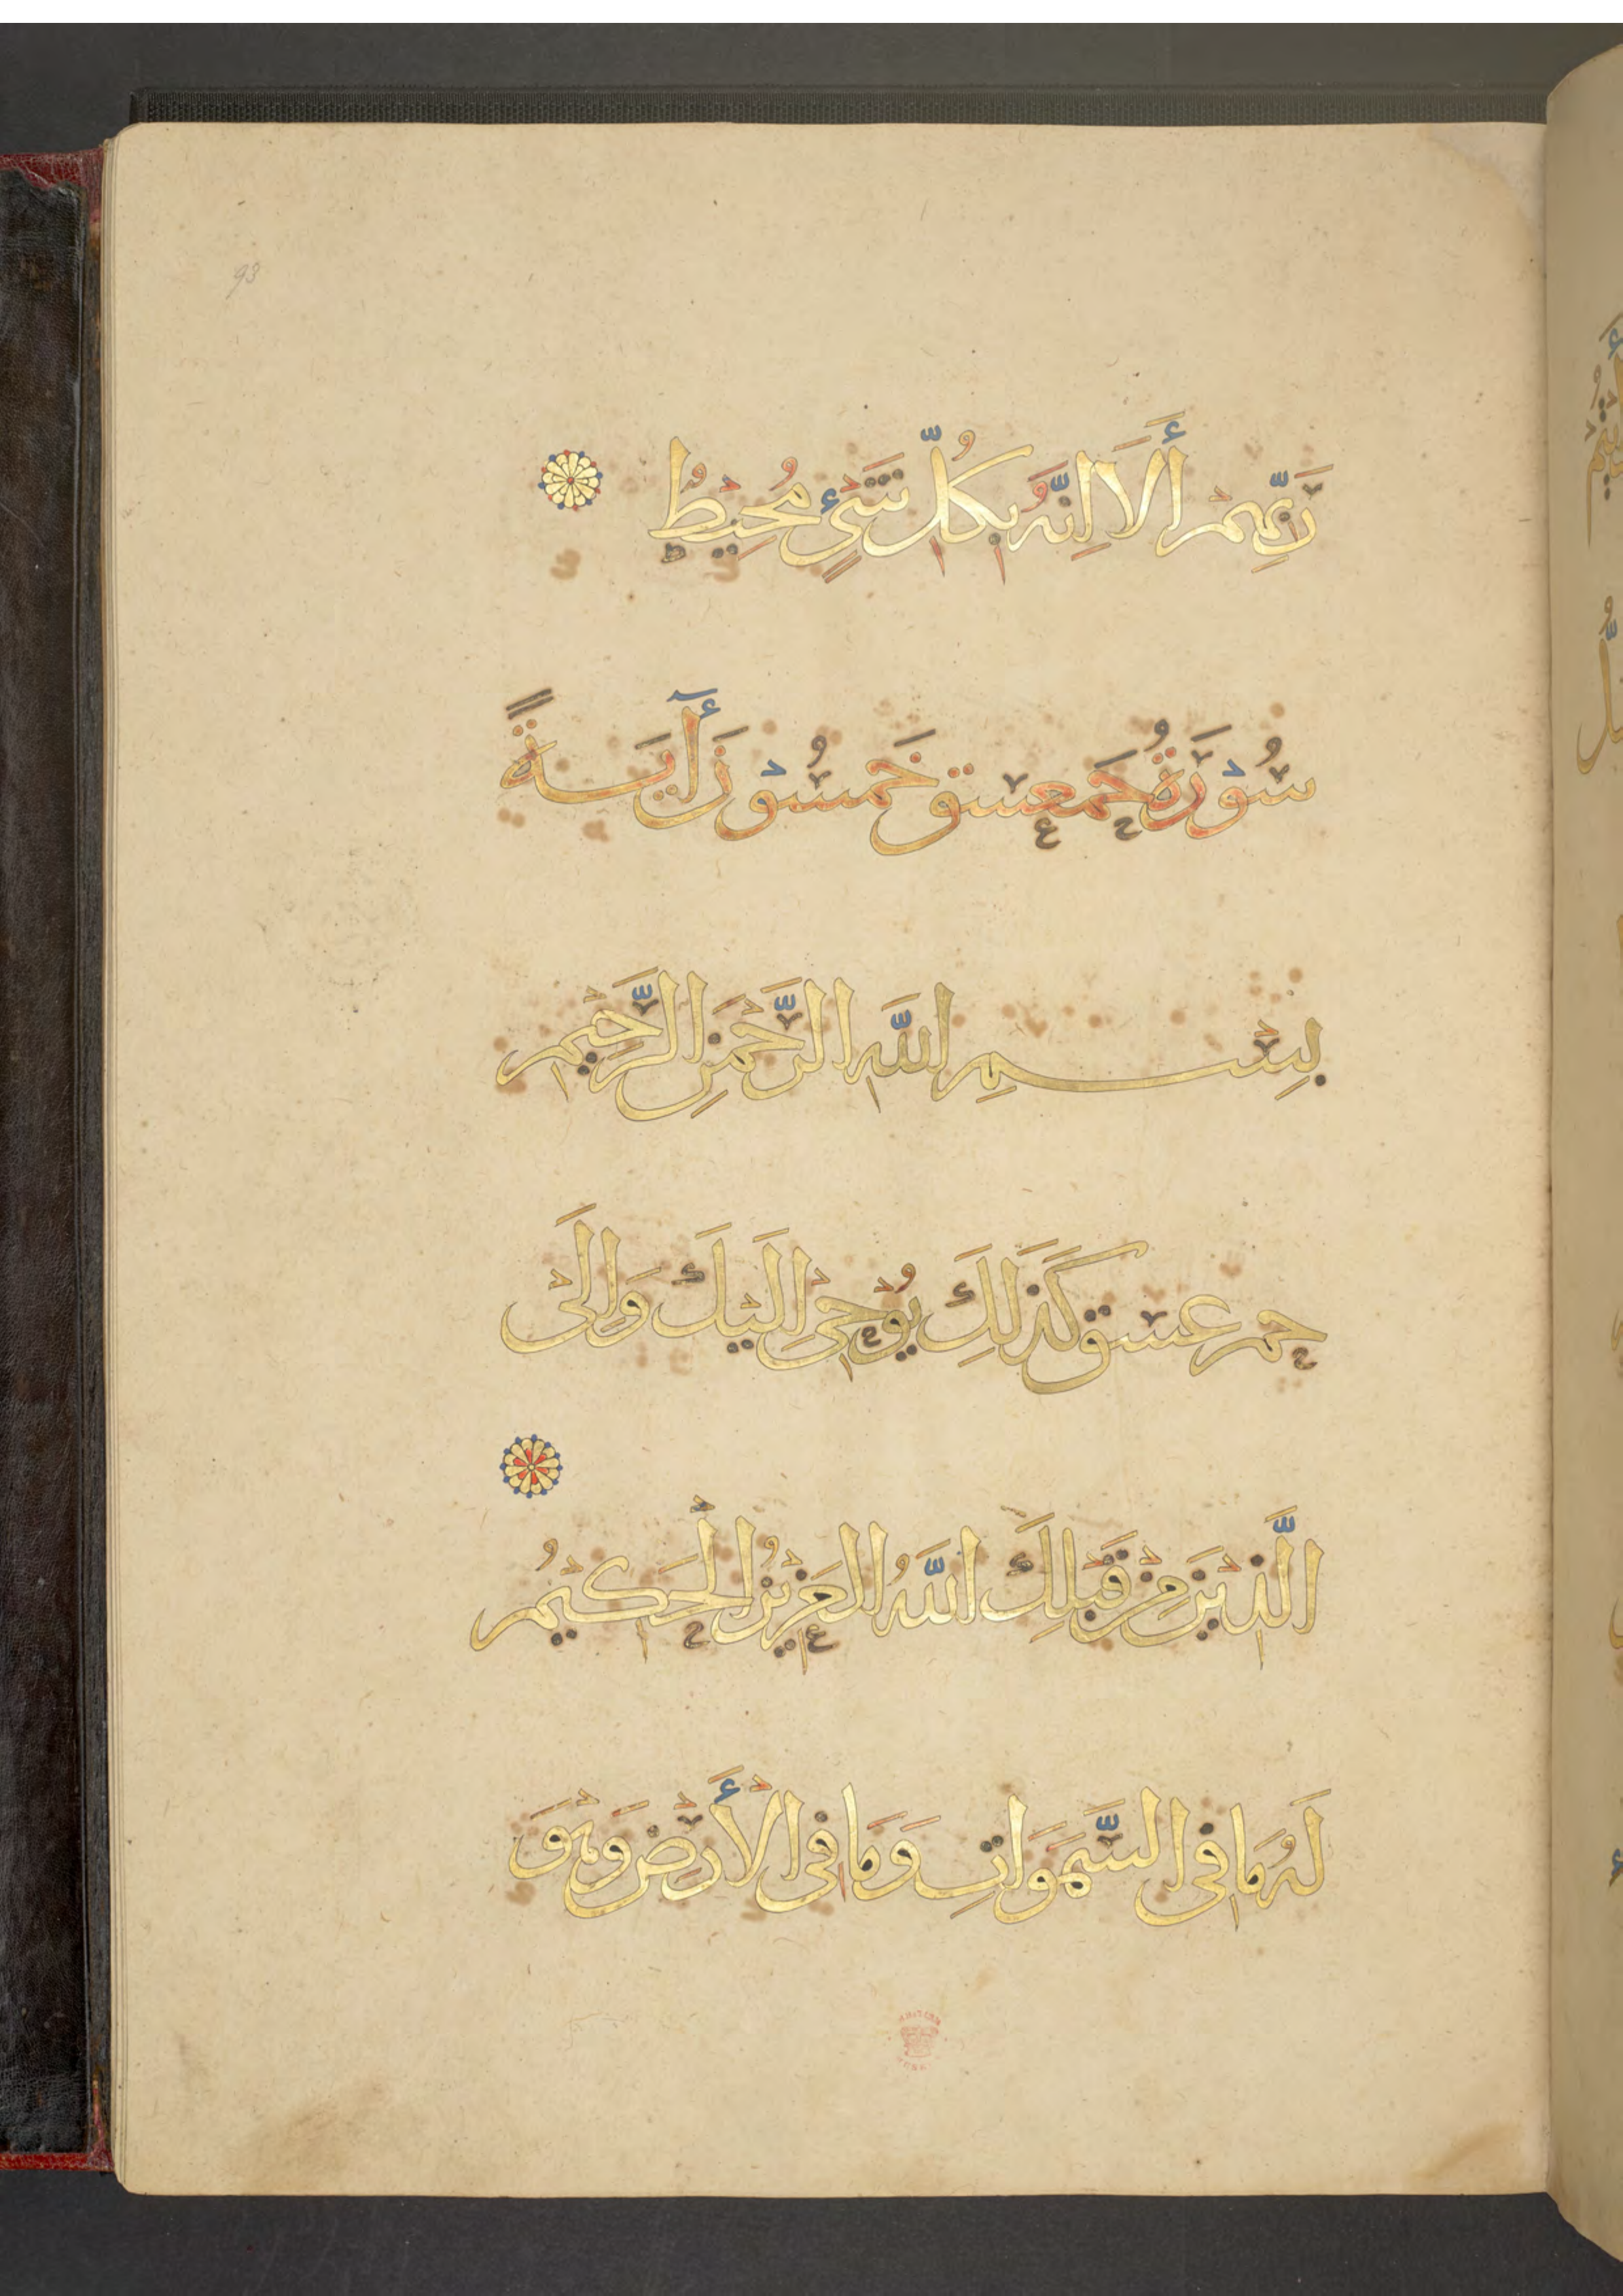 93
رَبِّهِمْ أَلَا إِنَّهُ بِكُلِّ شَيْءٍ مُحِيطٌ
سُوْرَةُ حَمَعسق خَمْسُوْنَ أَيَةً
بِسْمِ اللَّهِ الرَّحْمَنِ الرَّحِيمِ
حم عسق كَذَلِكَ يُوْحِي إِلَيْكَ وَإِلَى
الَّذِيْنَ مِنْ قَبْلِكَ اللَّهُ الْعَزِيْزُ الْحَكِيمُ
لَهُ مَا فِي السَّمَوَاتِ وَمَا فِي الْأَرْضِ وَهْوَ